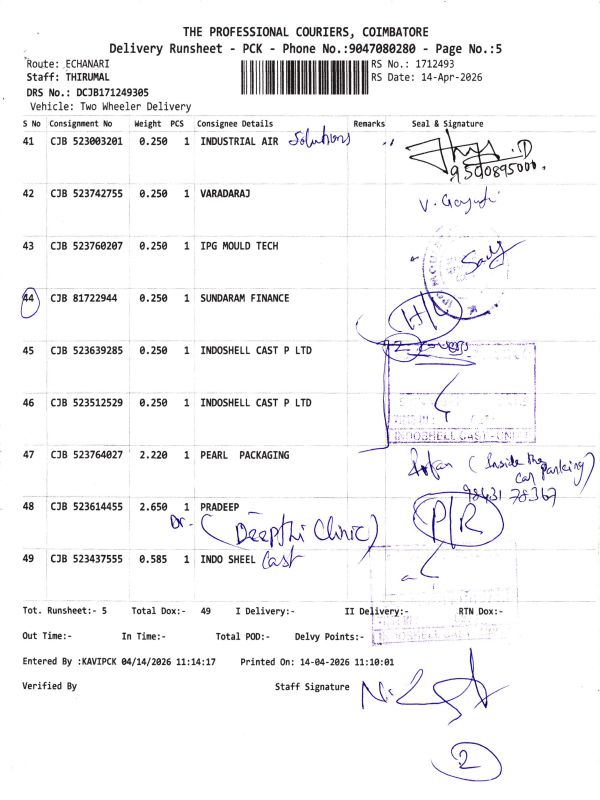 THE PROFESSIONAL COURIERS, COIMBATORE
Delivery Runsheet - PCK - Phone No.:9047080280 - Page No.:5
Route: ECHANARI
RS No.: 1712493
Staff: THIRUMAL
RS Date: 14-Apr-2026
DRS No.: DCJB171249305
Vehicle: Two Wheeler Delivery
S No Consignment No Weight PCS Consignee Details Remarks Seal & Signature
41 CJB 523003201 0.250 1 INDUSTRIAL AIR Solutions
9500895000.
42 CJB 523742755 0.250 1 VARADARAJ
43 CJB 523760207 0.250 1 IPG MOULD TECH
44 CJB 81722944 0.250 1 SUNDARAM FINANCE
45 CJB 523639285 0.250 1 INDOSHELL CAST P LTD
46 CJB 523512529 0.250 1 INDOSHELL CAST P LTD
INDOSHELL CAST
47 CJB 523764027 2.220 1 PEARL PACKAGING
(Inside the
car Parking)
98431 78367
48 CJB 523614455 2.650 1 PRADEEP
Dr. (Deepthi Clinic) P/R
49 CJB 523437555 0.585 1 INDO SHEEL Cast
Tot. Runsheet:- 5 Total Dox:- 49 I Delivery:- II Delivery:- RTN Dox:-
Out Time:- In Time:- Total POD:- Delvy Points:-
Entered By :KAVIPCK 04/14/2026 11:14:17 Printed On: 14-04-2026 11:10:01
Verified By Staff Signature
2